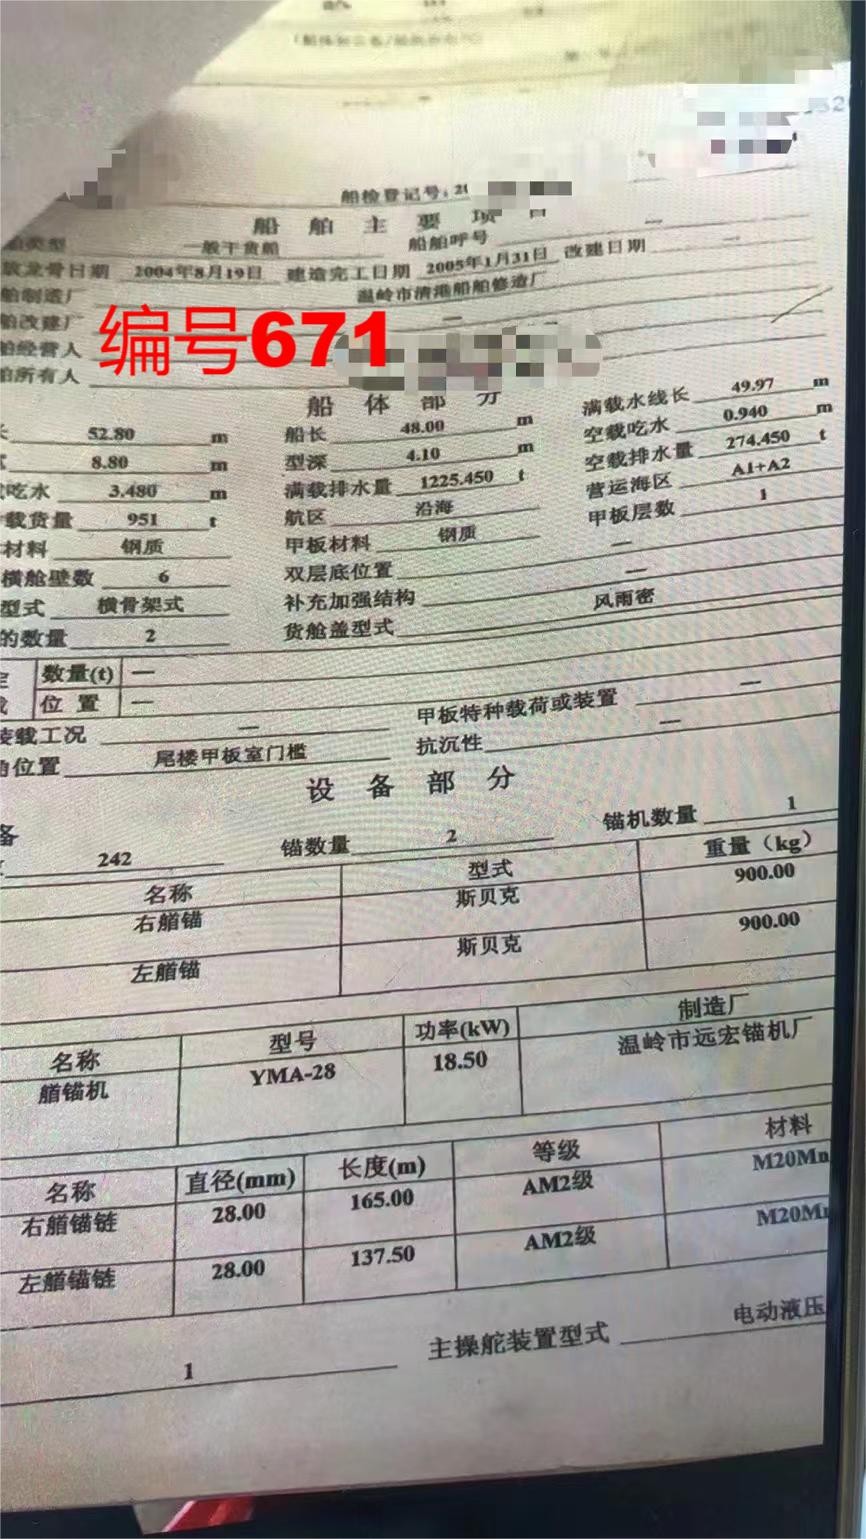 船检登记号:2
船舶主要项目
舶类型 一般干货船 船舶呼号 —
放龙骨日期 2004年8月19日 建造完工日期 2005年1月31日 改建日期 —
舶制造厂 温岭市清港船舶修造厂
舶改建厂 —
舶经营人
舶所有人
编号671
船体部分
长 52.80 m 船长 48.00 m 满载水线长 49.97 m
8.80 m 型深 4.10 m 空载吃水 0.940 m
载吃水 3.480 m 满载排水量 1225.450 t 空载排水量 274.450 t
载货量 951 t 航区 沿海 营运海区 A1+A2
材料 钢质 甲板材料 钢质 甲板层数 1
横舱壁数 6 双层底位置 —
型式 横骨架式 补充加强结构 —
的数量 2 货舱盖型式 风雨密
数量(t) —
位置 —
装载工况 — 甲板特种载荷或装置 —
角位置 尾楼甲板室门槛 抗沉性 —
设备部分
备
242 锚数量 2 锚机数量 1
名称 型式 重量（kg）
右艏锚 斯贝克 900.00
左艏锚 斯贝克 900.00
名称 型号 功率(kW) 制造厂
艏锚机 YMA-28 18.50 温岭市远宏锚机厂
名称 直径(mm) 长度(m) 等级 材料
右艏锚链 28.00 165.00 AM2级 M20Mn
左艏锚链 28.00 137.50 AM2级 M20Mn
1 主操舵装置型式 电动液压